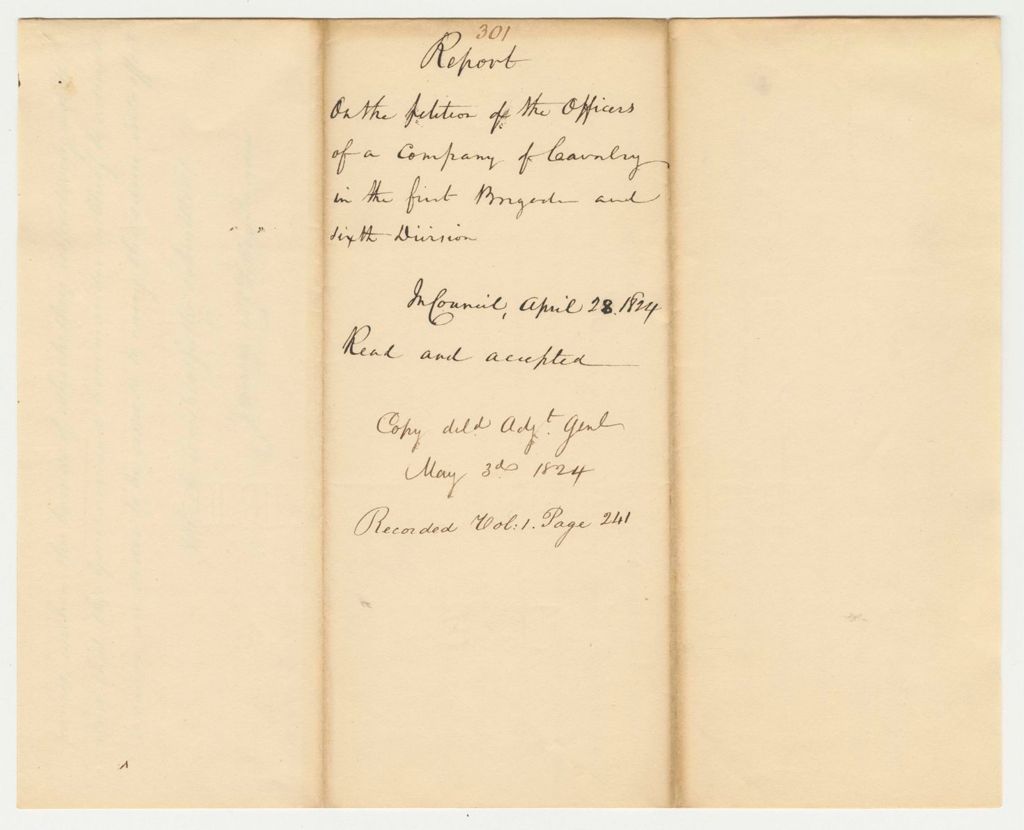 301
Report
On the petition of the Officers
of a Company of Cavalry
in the first Brigade and
sixth Division
In Council, April 28. 1824
Read and accepted
Copy deld Adjt. Genl
May 3d 1824
Recorded Vol: 1. Page 241